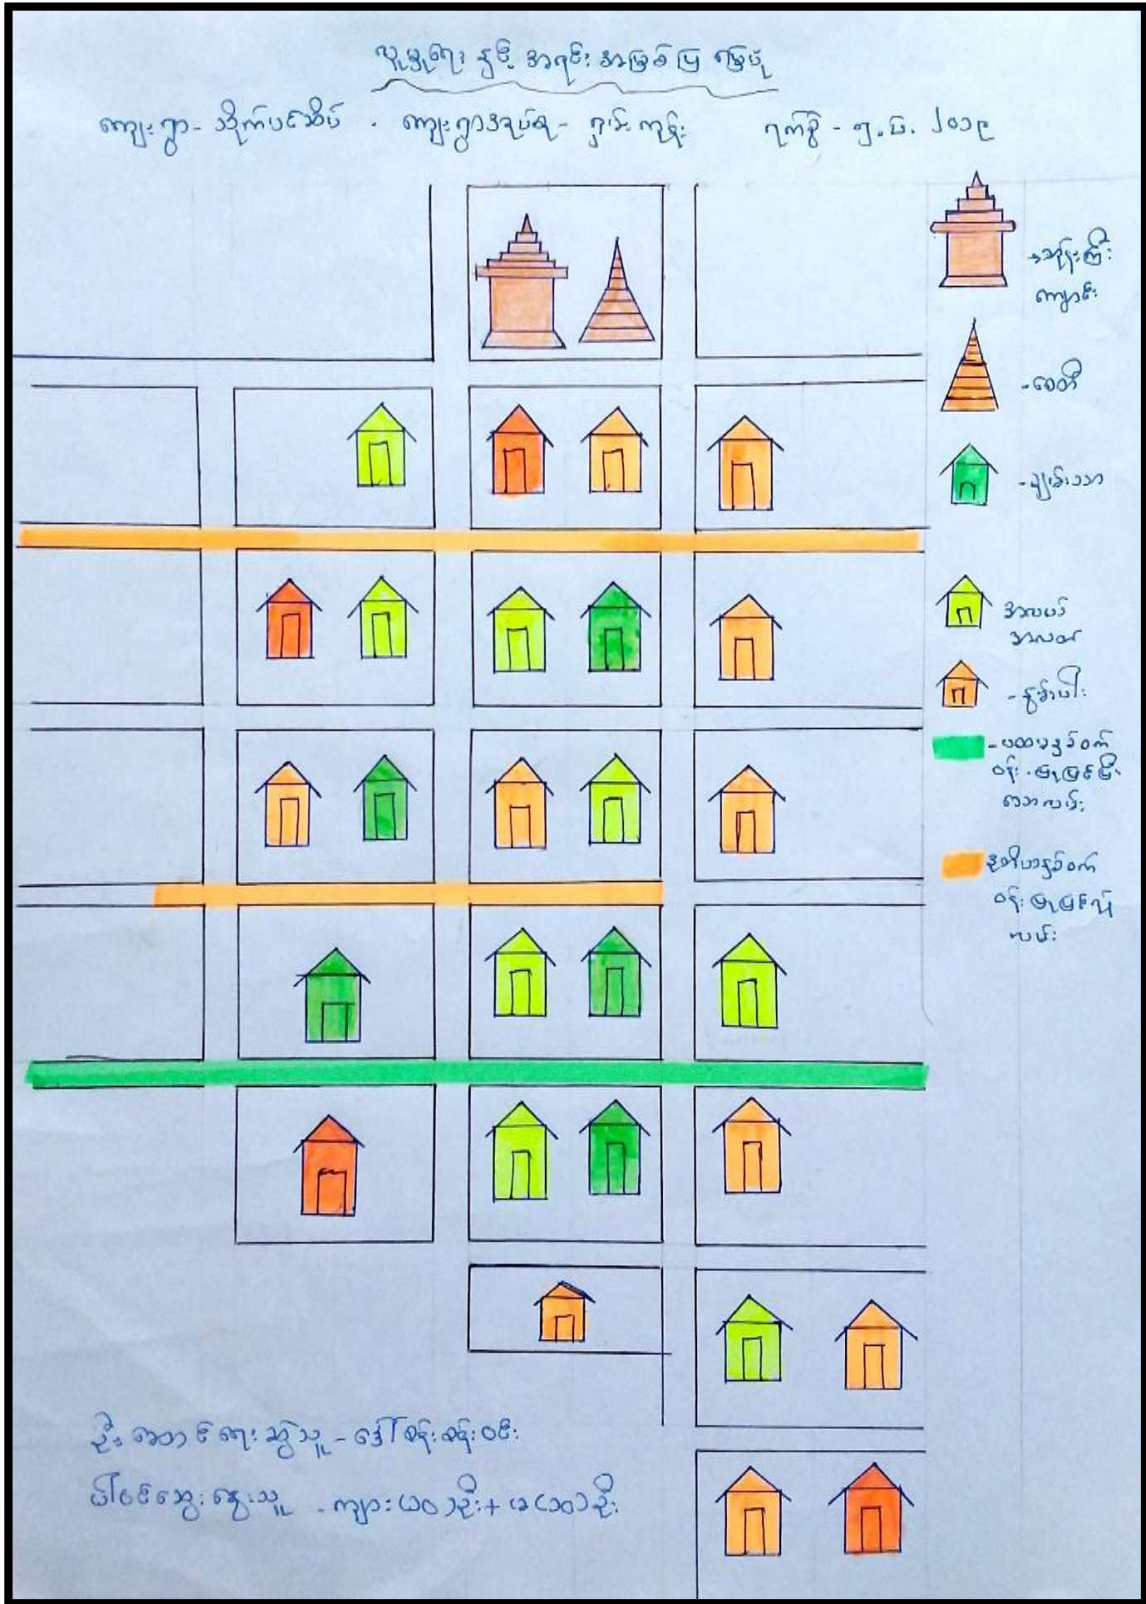 လူမှုရေး နှင့် အရင်း အမြစ်ပြ မြေပုံ
ကျေးရွာ - အိုက်ပင်ဆိပ် - ကျေးရွာအုပ်စု - ရှမ်းကုန်း ရက်စွဲ - ၅.၆.၂၀၁၉
ဘုန်းကြီး
ကျောင်း
- စေတီ
- ချမ်းသာ
အလယ်
အလတ်
- နွမ်းပါး
- ပထမနှစ်ဝက်
ဝန်းမြုပြင်ပြီး
သောလမ်း
ဒုတိယနှစ်ဝက်
ဝန်းမြုပြင်လို
လမ်း
ဦးဆောင်ရေးဆွဲသူ - ဒေါ်စန်းစန်းဝင်း
ပါဝင်ဆွေးနွေးသူ - ကျား (၁၀) ဦး + မ (၁၀) ဦး